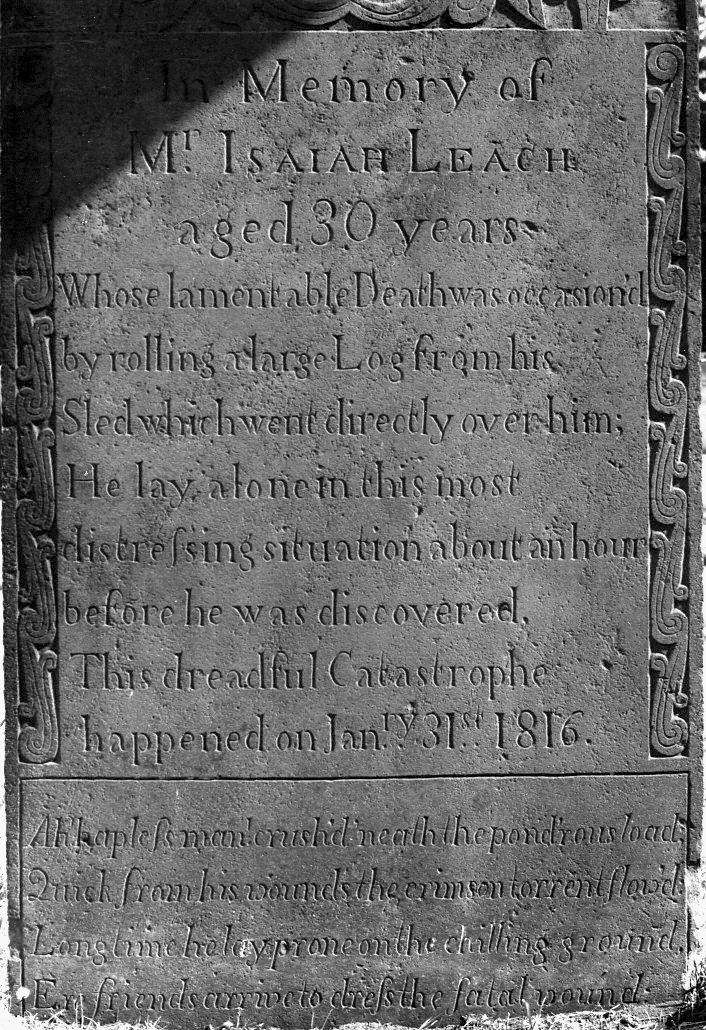 In Memory of
Mr. ISAIAH LEACH
aged 30 years
Whose lamentable Death was occasion'd
by rolling a large Log from his
Sled which went directly over him;
He lay alone in this most
distreſsing situation about an hour
before he was discovered.
This dreadful Catastrophe
happened on Jan.ry 31st. 1816.
Ah hapleſs man! crush'd 'neath the pond'rous load,
Quick from his wounds the crimson torrent flow'd.
Long time he lay prone on the chilling ground,
Ere friends arrive to dreſs the fatal wound.